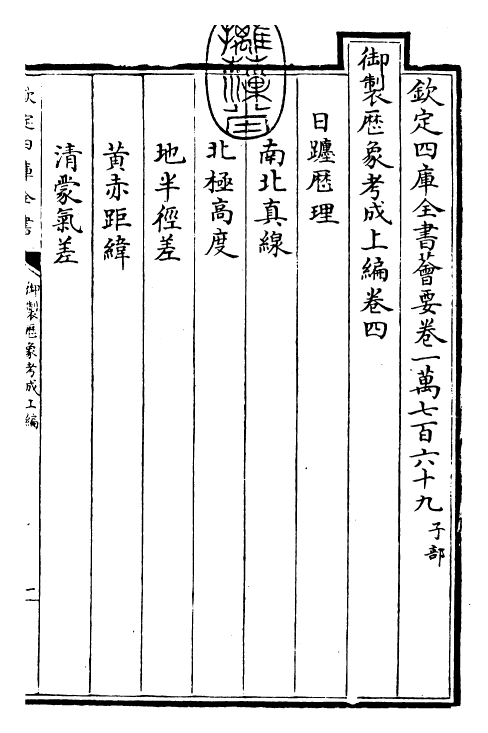 欽定四庫全書薈要卷一萬七百六十九 子部
御製歷象考成上編卷四
日躔歷理
南北真線
北極高度
地半徑差
黃赤距緯
清蒙氣差
欽定四庫全書
御製歷象考成上編